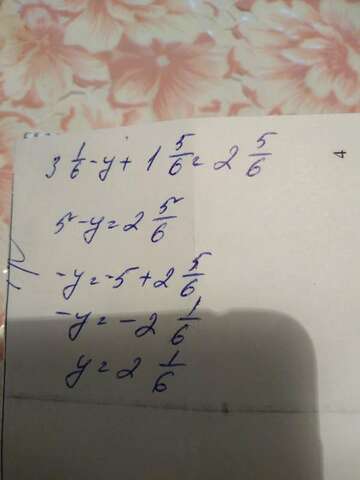 3 1/6 - y + 1 5/6 = 2 5/6
5 - y = 2 5/6
-y = -5 + 2 5/6
-y = -2 1/6
y = 2 1/6
4